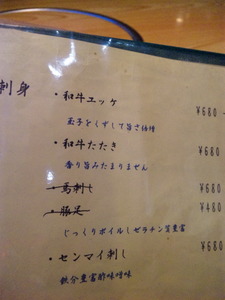 刺身
・和牛ユッケ ¥680-
玉子をくずして旨さ倍増
・和牛たたき ¥680
香り旨みたまりません
・馬刺し ¥680
・豚足 ¥480
じっくりボイルしゼラチン質豊富
・センマイ刺し ¥680
鉄分豊富酢味噌味